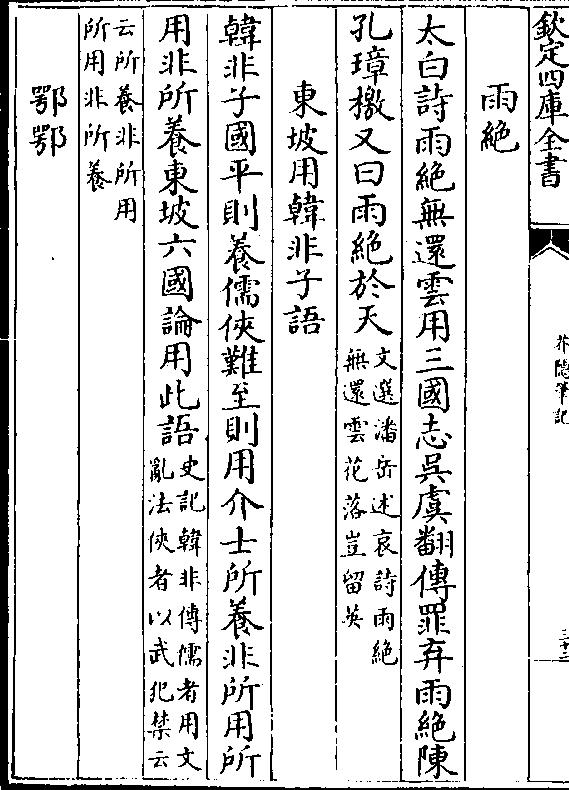 欽定四庫全書
芥隱筆記
三十二
雨絶
太白詩雨絶無還雲用三國志吳虞翻傳罪弃雨絶陳
孔璋檄又曰雨絶於天文選潘岳述哀詩雨絶
無還雲花落豈留英
東坡用韓非子語
韓非子國平則養儒俠難至則用介士所養非所用所
用非所養東坡六國論用此語史記韓非傳儒者用文
亂法俠者以武犯禁云
云所養非所用
所用非所養
鄂鄂